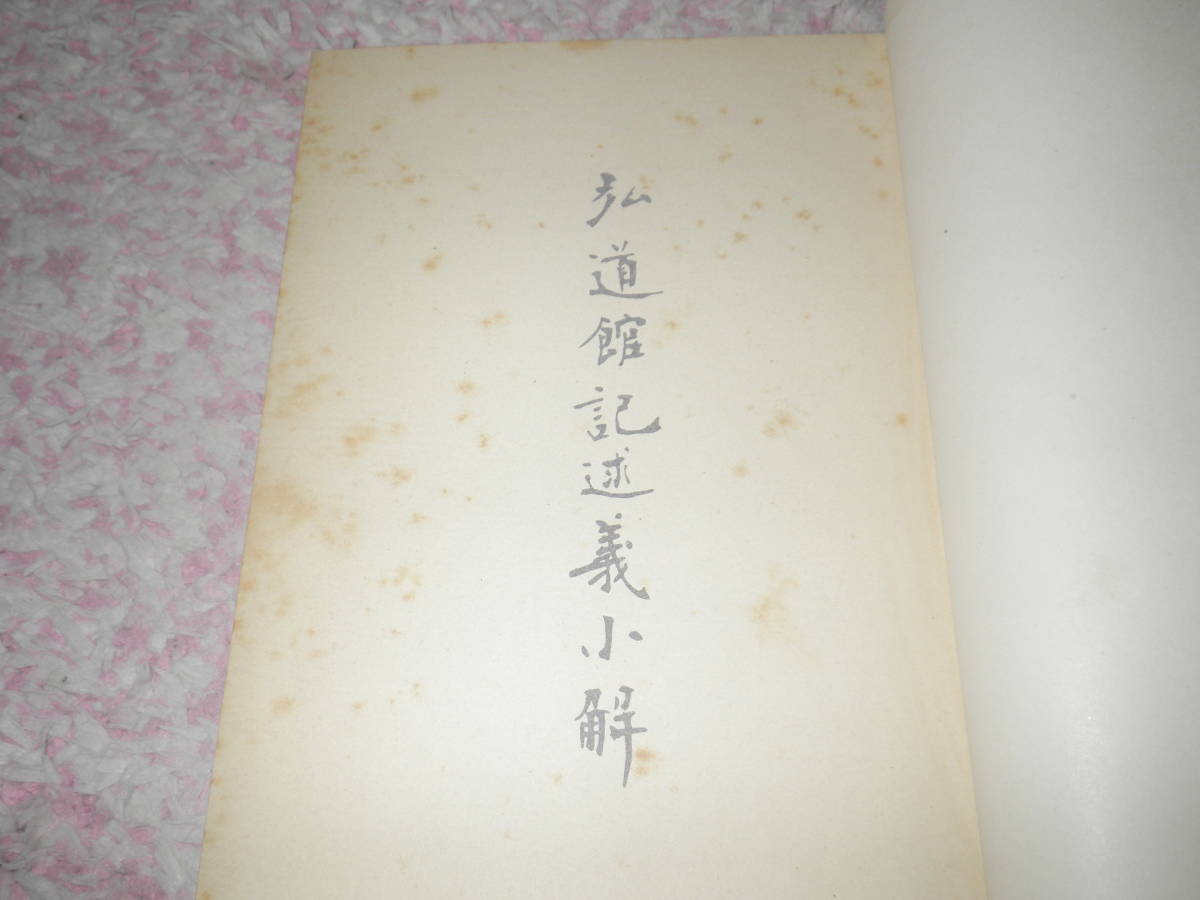 弘道館記述義小解